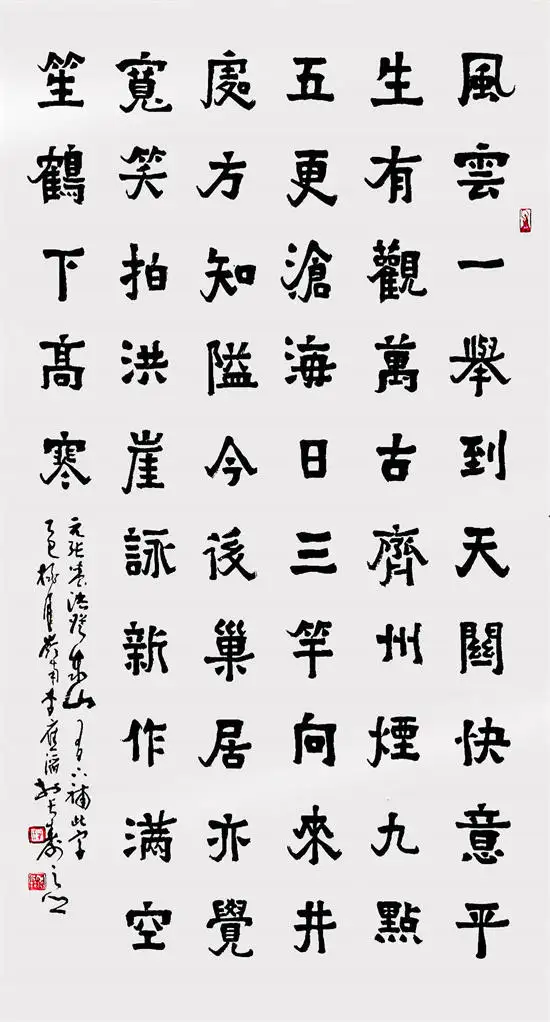 風雲一舉到天關快意平
生有觀萬古齊州煙九點
五更滄海日三竿向來井
處方知隘今後巢居亦覺
寬笑拍洪崖詠新作滿空
笙鶴下髙寒
元張養浩登泰山 下補此字